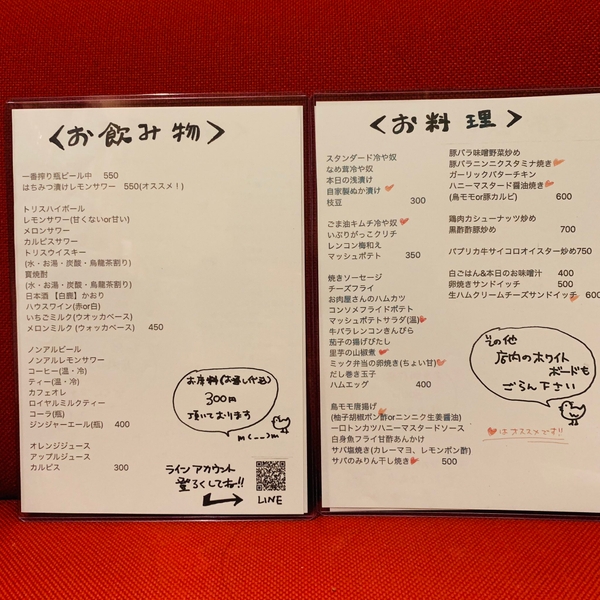 ＜お飲み物＞
一番搾り瓶ビール中 550
はちみつ漬けレモンサワー 550(オススメ！)
トリスハイボール
レモンサワー(甘くないor甘い)
メロンサワー
カルピスサワー
トリスウイスキー
(水・お湯・炭酸・烏龍茶割り)
買焼酎
(水・お湯・炭酸・烏龍茶割り)
日本酒【白鹿】かおり
ハウスワイン(赤or白)
いちごミルク(ウオッカベース)
メロンミルク(ウォッカベース) 450
ノンアルビール
ノンアルレモンサワー
コーヒー(温・冷)
ティー(温・冷)
カフェオレ
ロイヤルミルクティー
コーラ(瓶)
ジンジャーエール(瓶) 400
オレンジジュース
アップルジュース
カルピス 300
お席料(お通し代込)
300円
頂いております
m(__)m
ラインアカウント
登ろくしてね!!
LINE
＜お料理＞
スタンダード冷や奴
なめ茸冷や奴
本日の浅漬け
自家製ぬか漬け
枝豆 300
ごま油キムチ冷や奴
いぶりがっこクリチ
レンコン梅和え
マッシュポテト 350
焼きソーセージ
チーズフライ
お肉屋さんのハムカツ
コンソメフライドポテト
マッシュポテトサラダ(温)
牛バラレンコンきんぴら
茄子の揚げびたし
里芋の山椒煮
ミック弁当の卵焼き(ちょい甘)
だし巻き玉子
ハムエッグ 400
鳥モモ唐揚げ
(柚子胡椒ポン酢orニンニク生姜醤油)
一口トンカツハニーマスタードソース
白身魚フライ甘酢あんかけ
サバ塩焼き(カレーマヨ、レモンポン酢)
サバのみりん干し焼き 500
豚バラ味噌野菜炒め
豚バラニンニクスタミナ焼き
ガーリックバターチキン
ハニーマスタード醤油焼き
(鳥モモor豚カルビ) 600
鶏肉カシューナッツ炒め
黒酢酢豚炒め 700
パプリカ牛サイコロオイスター炒め750
白ごはん&本日のお味噌汁 400
卵焼きサンドイッチ 500
生ハムクリームチーズサンドイッチ 600
その他
店内のホワイト
ボードも
ごらん下さい
はオススメです!!